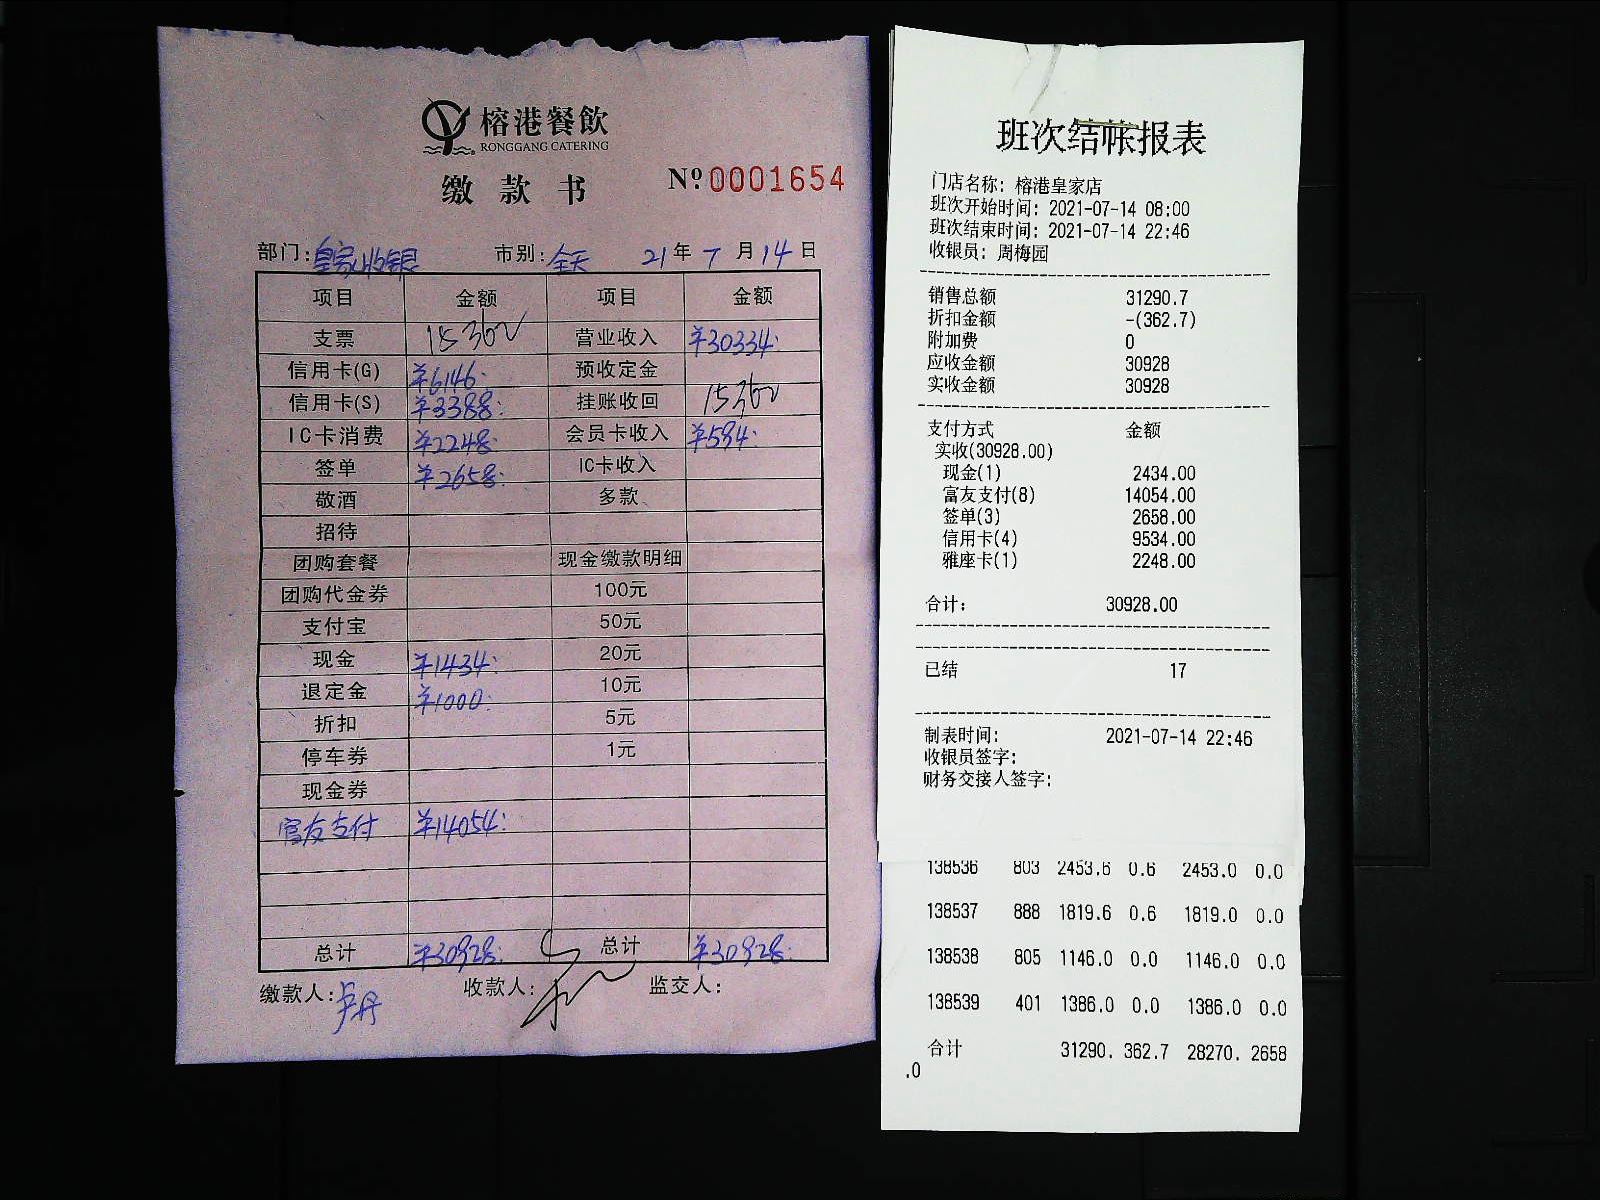 榕港餐飲
RONGGANG CATERING
缴款书 Nº 0001654
部门: 皇家收银 市别: 全天 21年 7月 14日
项目 金额 项目 金额
支票 15360 营业收入 ¥30334.
信用卡(G) ¥6146. 预收定金
信用卡(S) ¥3388. 挂账收回 15360
IC卡消费 ¥2248. 会员卡收入 ¥594.
签单 ¥2658. IC卡收入
敬酒 多款
招待
团购套餐 现金缴款明细
团购代金券 100元
支付宝 50元
现金 ¥1434. 20元
退定金 ¥1000. 10元
折扣 5元
停车券 1元
现金券
富友支付 ¥14054.
总计 ¥30928. 总计 ¥30928.
缴款人: 卢丹 收款人: 监交人:
班次结帐报表
门店名称: 榕港皇家店
班次开始时间: 2021-07-14 08:00
班次结束时间: 2021-07-14 22:46
收银员: 周梅园
销售总额 31290.7
折扣金额 -(362.7)
附加费 0
应收金额 30928
实收金额 30928
支付方式 金额
实收(30928.00)
现金(1) 2434.00
富友支付(8) 14054.00
签单(3) 2658.00
信用卡(4) 9534.00
雅座卡(1) 2248.00
合计: 30928.00
已结 17
制表时间: 2021-07-14 22:46
收银员签字:
财务交接人签字:
138536 803 2453.6 0.6 2453.0 0.0
138537 888 1819.6 0.6 1819.0 0.0
138538 805 1146.0 0.0 1146.0 0.0
138539 401 1386.0 0.0 1386.0 0.0
合计 31290. 362.7 28270. 2658
.0